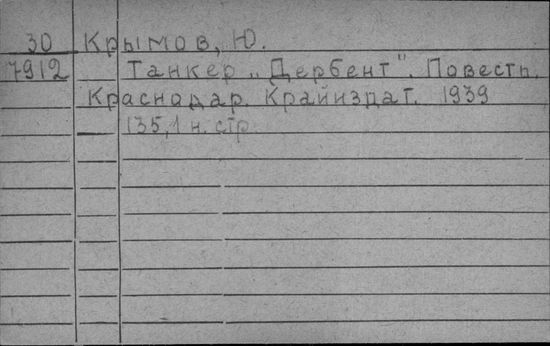 30 Крымов, Ю.
7912 Танкер „Дербент". Повесть.
Краснодар. Крайиздат. 1939
135,1 н. стр.